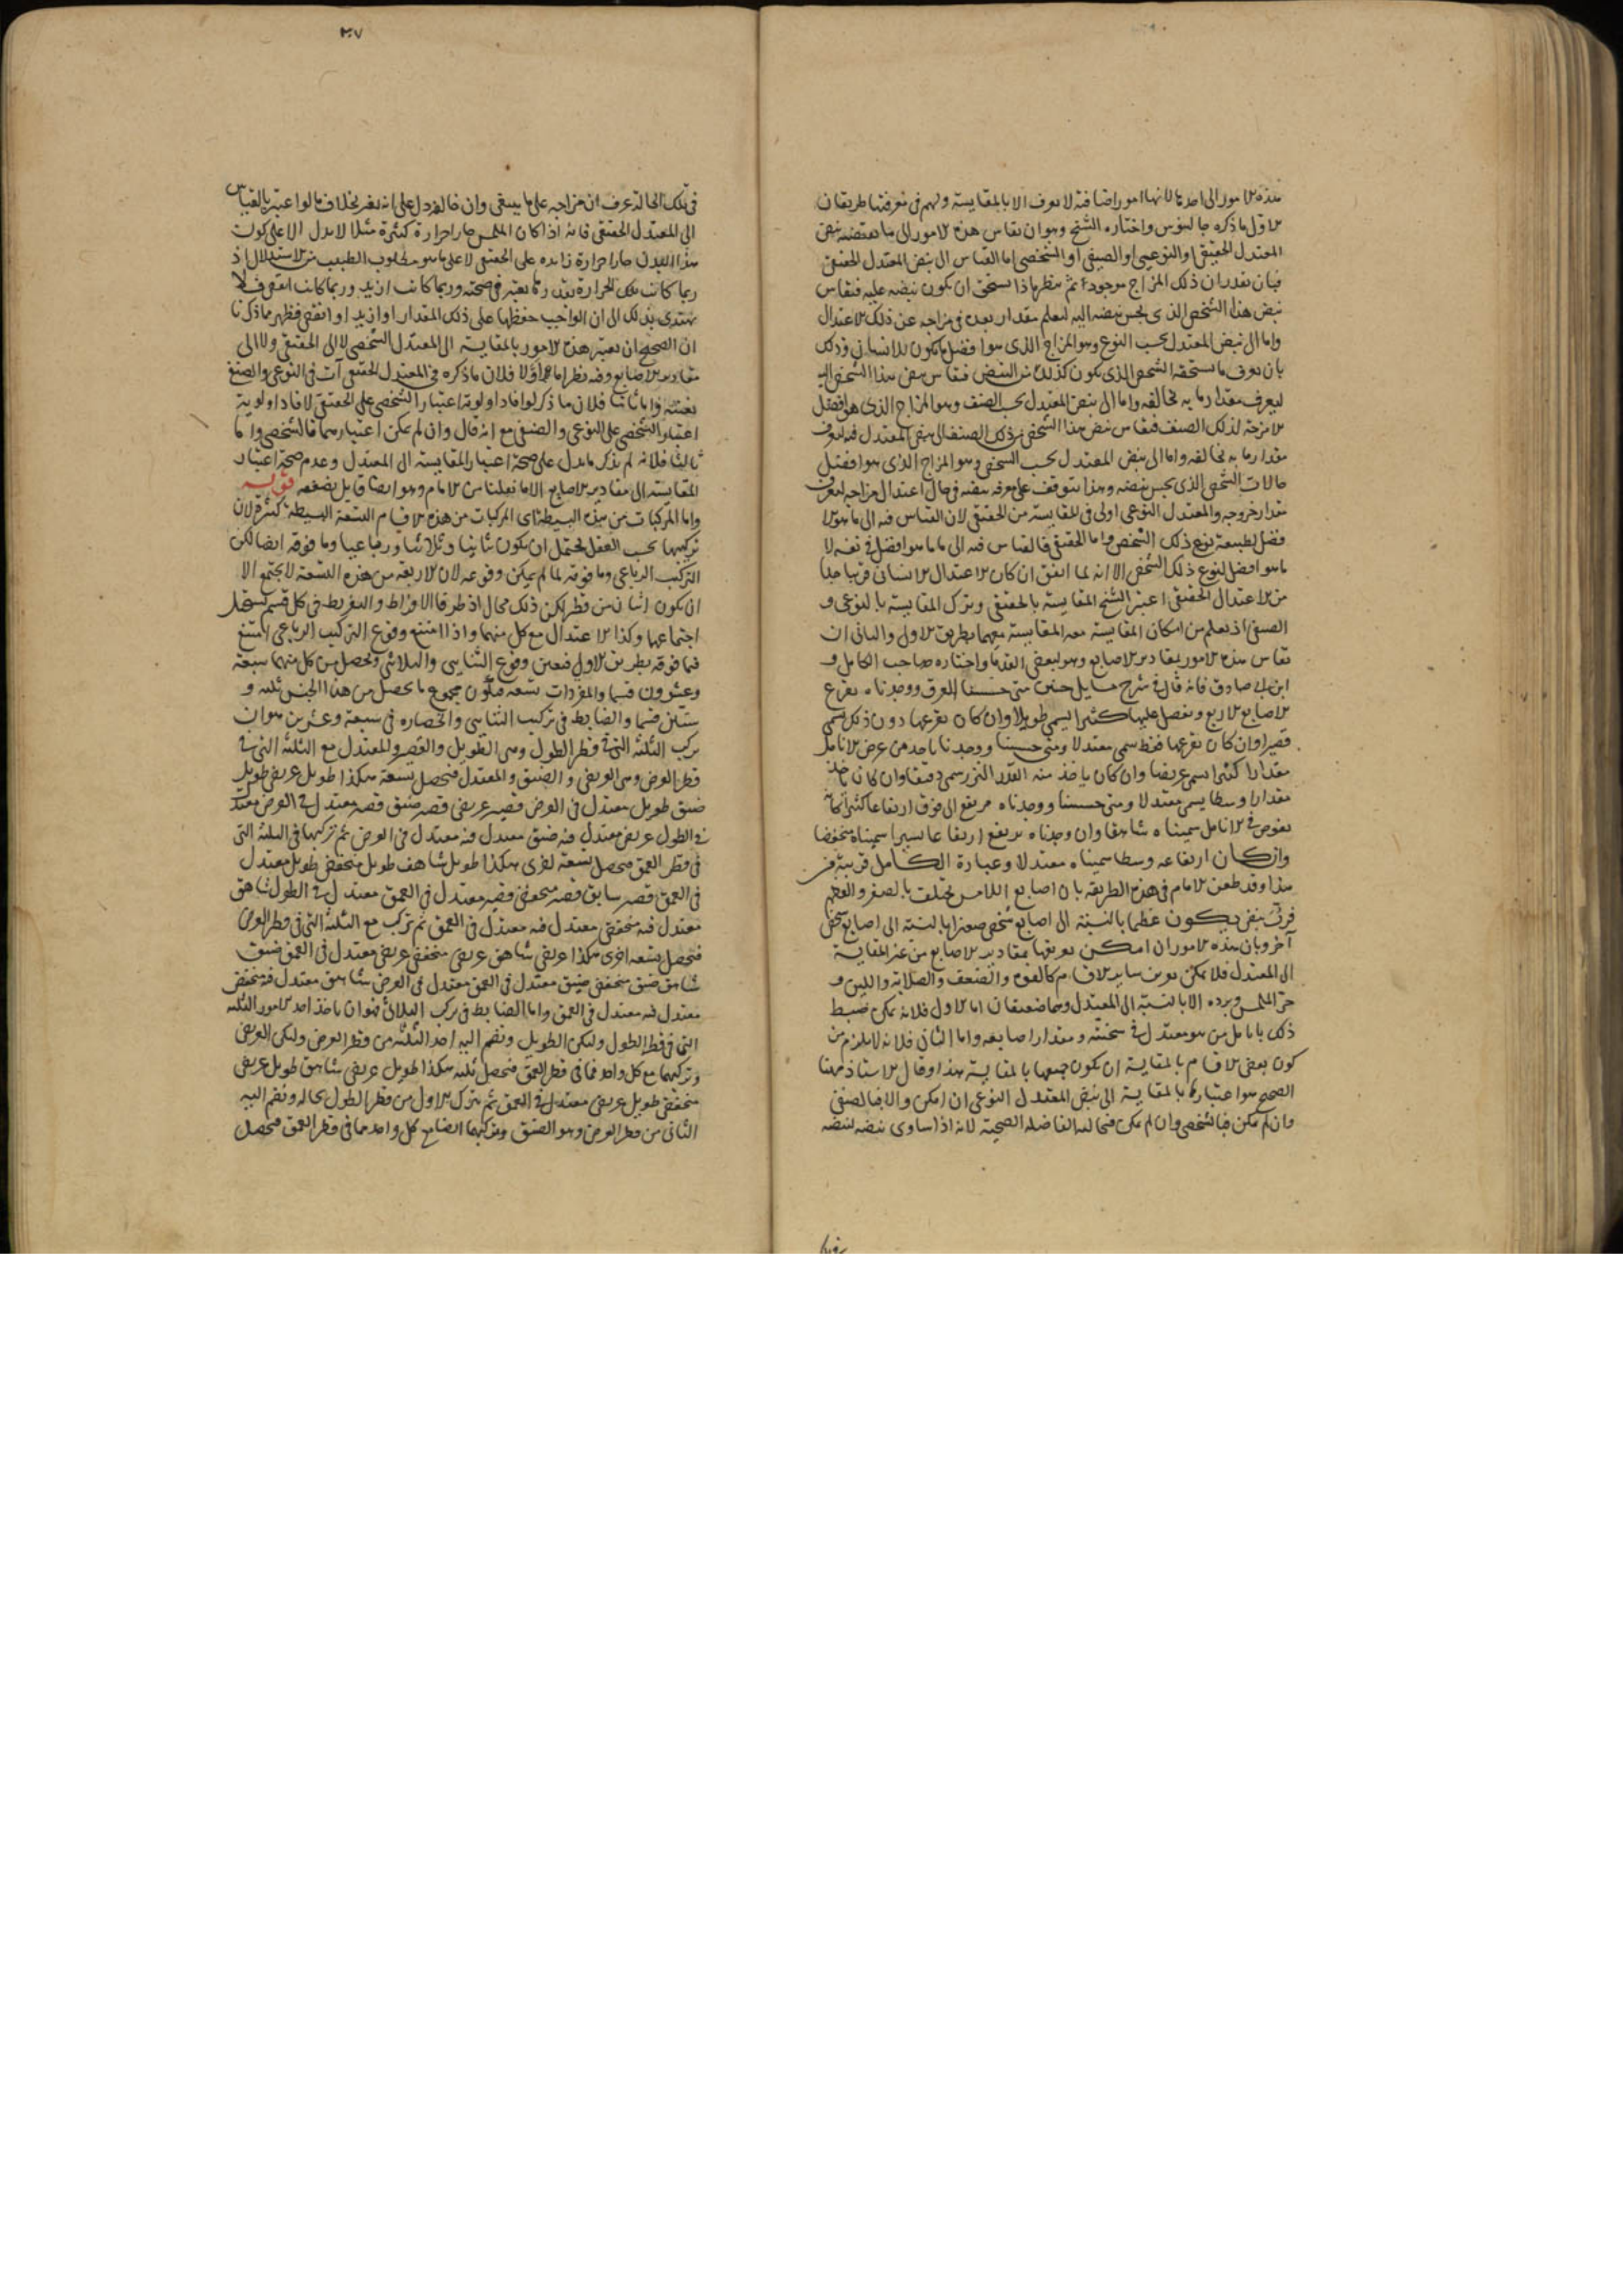 هذه الامور الى احدها لانها امور اضافية لا تعرف الا بالمقايسة ولهم فى معرفتها طريقان
الاول ما ذكره جالينوس واختاره الشيخ وهو ان تقاس هذه الامور الى ما يقتضيه نبض
المعتدل الحقيقى او النوعى او الصنفى او الشخصى اما القياس الى نبض المعتدل الحقيقى
فبان نقدر ان ذلك المزاج موجود ثم ننظر ماذا يستحق ان يكون نبضه عليه فنقاس
نبض هذا الشخص الذى يجس نبضه اليه ليعلم مقدار بعده فى مزاجه عن ذلك الاعتدال
واما الى نبض المعتدل بحسب النوع وهو المزاج الذى هو افضل ما يكون للانسان وذلك
بان نعرف ما يستحقه الشخص الذى يكون كذلك من النبض فنقاس نبض هذا الشخص اليه
ليعرف مقدار ما به يخالفه واما الى نبض المعتدل بحسب الصنف وهو المزاج الذى هو افضل
الامزجة لذلك الصنف فنقاس نبض هذا الشخص من ذلك الصنف الى نبض المعتدل فيه ليعرف
مقدار ما به يخالفه واما الى نبض المعتدل بحسب الشخص وهو المزاج الذى هو افضل
حالات الشخص الذى يجس نبضه وهذا يتوقف على معرفة نبضه فى حال اعتدال مزاجه ليعرف
مقدار خروجه والمعتدل النوعى اولى فى المقايسة من الحقيقى لان القياس فيه الى ما هو الا
فضل لطبيعة نوع ذلك الشخص واما الحقيقى فالقياس فيه الى ما هو افضل فى نفسه لا
ما هو افضل لنوع ذلك الشخص الا انه لما اتفق ان كان الاعتدال الانسانى قريبا جدا
من الاعتدال الحقيقى اعتبر الشيخ المقايسة بالحقيقى وترك المقايسة بالنوعى و
الصنفى اذ تعلم من امكان المقايسة معه المقايسة معهما بطريق الاول والثانى ان
تقاس هذه الامور بمقادير الاصابع وهو لبعض القدما واختاره صاحب الكامل و
ابن ابى صادق فانه قال فى شرح مسايل حنين متى حسسنا العرق ووجدناه يقرع
الاصابع الاربع ويفضل عليها كثيرا يسمى طويلا وان كان يقرعها دون ذلك سمى
قصيرا وان كان يقرعها فقط سمى معتدلا ومتى حسسنا ووجدنا ياخذ من عرض الانامل
مقدارا كثيرا يسمى عريضا وان كان ياخذ منه القدر النزر سمى دقيقا وان كان ياخذ
مقدارا وسطا يسمى معتدلا ومتى حسسنا ووجدناه مرتفع الى فوق ارتفاعا كثيرا كانه
يغوص فى الانامل سميناه شاهقا وان وجدناه يرتفع ارتفاعا يسيرا سميناه منخفضا
وان كان ارتفاعه وسطا سميناه معتدلا وعبارة الكامل قريبة من
هذا وقد طعن الامام فى هذه الطريقة بان اصابع اللامس تختلف بالصغر والعظم
فرب نبض يكون عظيما بالنسبة الى اصابع شخص صغيرا بالنسبة الى اصابع شخص
آخر وبان هذه الامور ان امكن تعريفها بمقادير الاصابع من غير المقايسة
الى المعتدل فلا يمكن تعرف ساير الاقسام كالقوة والضعف والصلابة واللين و
حر الملمس وبرده الا بالنسبة الى المعتدل وهما ضعيفان اما الاول فلانه يمكن ضبط
ذلك بانامل من هو معتدل فى سحنته ومقدار اصابعه واما الثانى فلانه لا يلزم من
كون بعض الاقسام بالمقايسة ان يكون جميعها بالمقايسة هذا وقال الاستاذ ههنا
الصحيح هو اعتباره بالمقايسة الى نبض المعتدل النوعى ان امكن والا فبالصنفى
وان لم يمكن فبالشخصى وان لم يمكن فبحالته الفاضلة الصحية لانه اذا ساوى نبضه لنبضه
٣٠٧
فى تلك الحالة عرف ان مزاجه على ما ينبغى وان خالفه دل على انه تغير بخلاف ما لو اعتبر بالقياس
الى المعتدل الحقيقى فانه اذا كان الملمس حارا حرارة كثيرة مثلا لا يدل الا على كون
هذا البدن حارا حرارة زايدة على الحقيقى لا على ما هو مطلوب الطبيب من الاستدلال اذ
ربما كانت تلك الحرارة بقدر ما يعتبر فى صحته وربما كانت ازيد وربما كانت انقص فلا
يهتدى بذلك الى ان الواجب حفظها على ذلك المقدار او ازيد او انقص فظهر مما ذكرنا
ان الصحيح ان تعتبر هذه الامور بالمقايسة الى المعتدل الشخصى لا الى الحقيقى ولا الى
مقادير الاصابع وفيه نظر اما اولا فلان ما ذكره فى المعتدل الحقيقى آت فى النوعى والصنفى
بعينه واما ثانيا فلان ما ذكر لو افاد اولوية اعتبار الشخصى على الحقيقى لافاد اولوية
اعتبار الشخصى على النوعى والصنفى مع انه قال وان لم يمكن اعتبارهما فالشخصى واما
ثالثا فلانه لم يذكر ما يدل على صحة اعتبار المقايسة الى المعتدل وعدم صحة اعتبار
المقايسة الى مقادير الاصابع الا ما نقلنا من الامام وهو ايضا قايل بضعفه قوله
واما المركبات من هذه البسيطة اى المركبات من هذه الاقسام التسعة البسيطة كثيرة لان
تركيبها بحسب العقل يحتمل ان يكون ثنائيا وثلاثيا ورباعيا وما فوقه ايضا لكن
التركيب الرباعى وما فوقه لما لم يمكن وقوعه لان الاربعة من هذه التسعة لا يجتمع الا
ان يكون اثنان من قطر لكن ذلك محال اذ طرفا الافراط والتفريط فى كل قسم يستحيل
اجتماعهما وكذا الاعتدال مع كل منهما واذا امتنع وقوع التركيب الرباعى امتنع
فما فوقه بطريق الاولى فتعين وقوع الثنائى والثلاثى وتحصل من كل منهما سبعة
وعشرون قسما والمفردات تسعة فيكون مجموع ما يحصل من هذا الجنس ثلثة و
ستين قسما والضابط فى تركيب الثنائى وانحصاره فى سبعة وعشرين هو ان
يركب الثلثة التى فى قطر الطول وهى الطويل والقصير والمعتدل مع الثلثة التى فى
قطر العرض وهى العريض والضيق والمعتدل فتحصل تسعة هكذا طويل عريض طويل
ضيق طويل معتدل فى العرض قصير عريض قصير ضيق قصير معتدل فى العرض معتدل
فى الطول عريض معتدل فيه ضيق معتدل فيه معتدل فى العرض ثم تركيبها فى الثلثة التى
فى قطر العمق فتحصل تسعة اخرى هكذا طويل شاهق طويل منخفض طويل معتدل
فى العمق قصير شاهق قصير منخفض قصير معتدل فى العمق معتدل فى الطول شاهق
معتدل فيه منخفض معتدل فيه معتدل فى العمق ثم تركب مع الثلثة التى فى قطر العرض
فتحصل تسعة اخرى هكذا عريض شاهق عريض منخفض عريض معتدل فى العمق ضيق
شاهق ضيق منخفض ضيق معتدل فى العمق معتدل فى العرض شاهق معتدل فيه منخفض
معتدل فيه معتدل فى العمق واما الضابط فى تركيب الثلاثى فهو ان ياخذ احد الامور الثلثة
التى فى قطر الطول وليكن الطويل وتضم اليه احد الثلثة من قطر العرض وليكن العريض
وتركبهما مع كل واحد مما فى قطر العمق فتحصل ثلثة هكذا طويل عريض شاهق طويل عريض
منخفض طويل عريض معتدل فى العمق ثم تترك الاول من قطر الطول بحاله وتضم اليه
الثانى من قطر العرض وهو الضيق وتركبهما ايضا مع كل واحد مما فى قطر العمق فتحصل